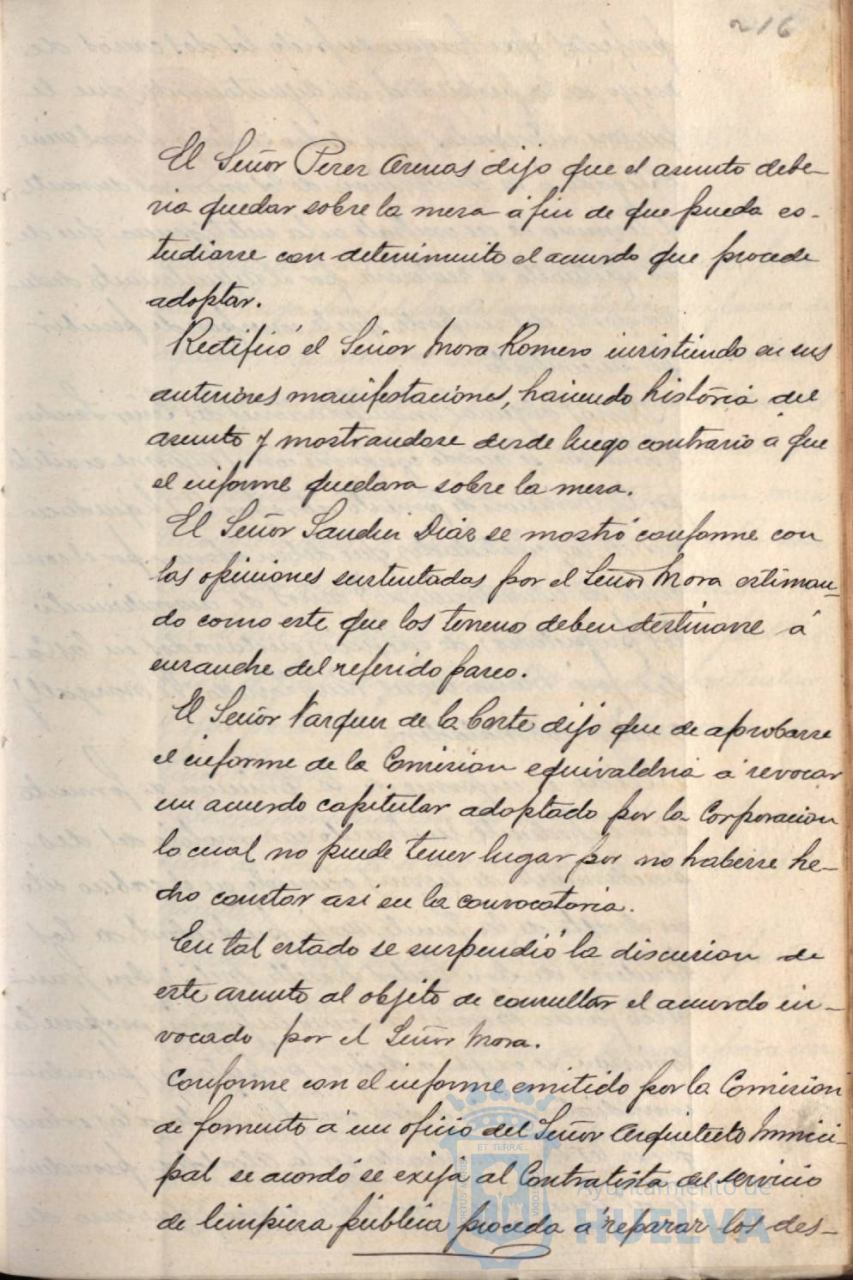 216
El Señor Perez Arenas dijo que el asunto debe-
ria quedar sobre la mesa á fin de que pueda es-
tudiarse con detenimiento el acuerdo que procede
adoptar.
Rectificó el Señor Mora Romero insistiendo en sus
anteriores manifestaciones, haciendo historia del
asunto y mostrandose desde luego contrario á que
el informe quedara sobre la mesa.
El Señor Sanchez Diaz se mostró conforme con
las opiniones sustentadas por el Señor Mora estiman-
do como este que los terrenos deben destinarse á
ensanche del referido paseo.
El Señor Vazquez de la Corte dijo que de aprobarse
el informe de la Comision equivaldria á revocar
un acuerdo capitular adoptado por la Corporacion
lo cual no puede tener lugar por no haberse he-
cho constar asi en la convocatoria.
En tal estado se suspendió la discusion de
este asunto al objeto de consultar el acuerdo in-
vocado por el Señor Mora.
Conforme con el informe emitido por la Comision
de fomento á un oficio del Señor Arquitecto Munici-
pal se acordó se exija al Contratista del servicio
de limpieza pública proceda á reparar los des-
ET TERRÆ
Ayuntamiento de
HUELVA